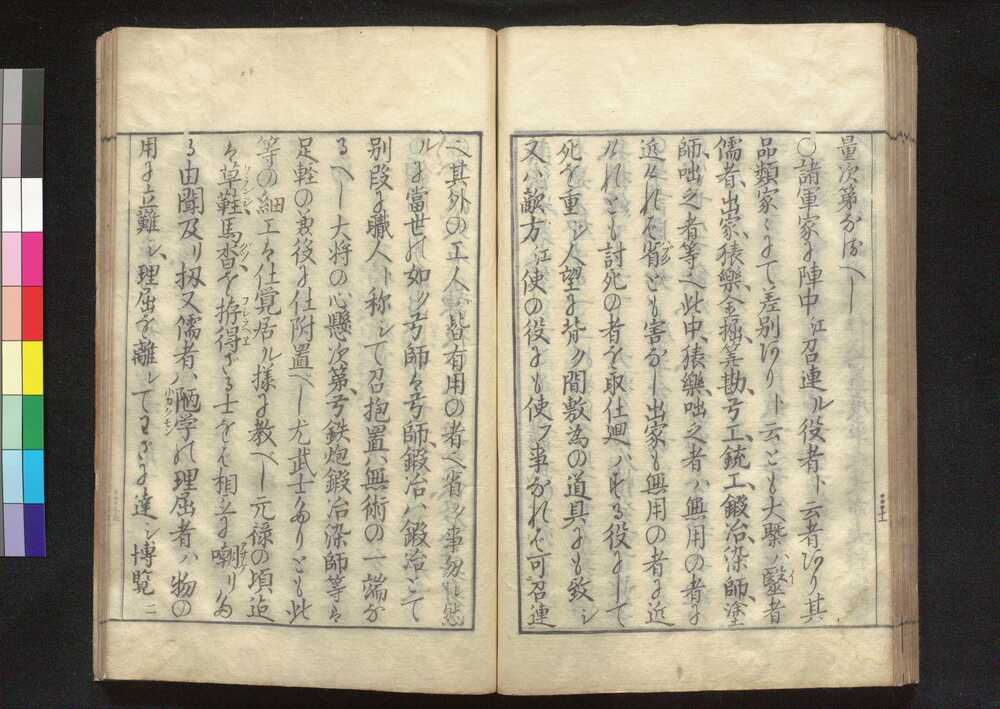 量次第なるへし
○諸軍家に陣中江召連ル役者ト云者あり其
品類家々にて差別ありト云とも大槩ハ醫者
儒者、出家、猿樂、金掘、筭勘、弓工、銃工、鍛冶、染師、塗
師、咄之者等也此中、猿樂咄之者ハ無用の者に
近けれは省とも害なし出家も無用の者に近
けれとも討死の者を取仕廻ハする役にして
死を重シ人望に背ク間敷為の道具にも致シ
又ハ敵方江使の役にも使フ事なれは可召連
也其外の工人ハ皆有用の者也省ク事勿れ然
ルに當世の如ク弓師は弓師、鍛冶ハ鍛冶とて
別段に職人ト称して召抱置ハ無術の一端な
るへし大将の心懸次第、弓鉄炮鍛冶染師等は
足軽の兼役に仕附置へし尤武士たりとも此
等の細工は仕覚居ル様に教へし元禄の頃迄
は草鞋馬沓を拵得さる士をは相互に嘲りた
る由聞及り扨又儒者ハ陋学の理屈者ハ物の
用に立難シ、理屈を離レてわさに達シ博覧ニ